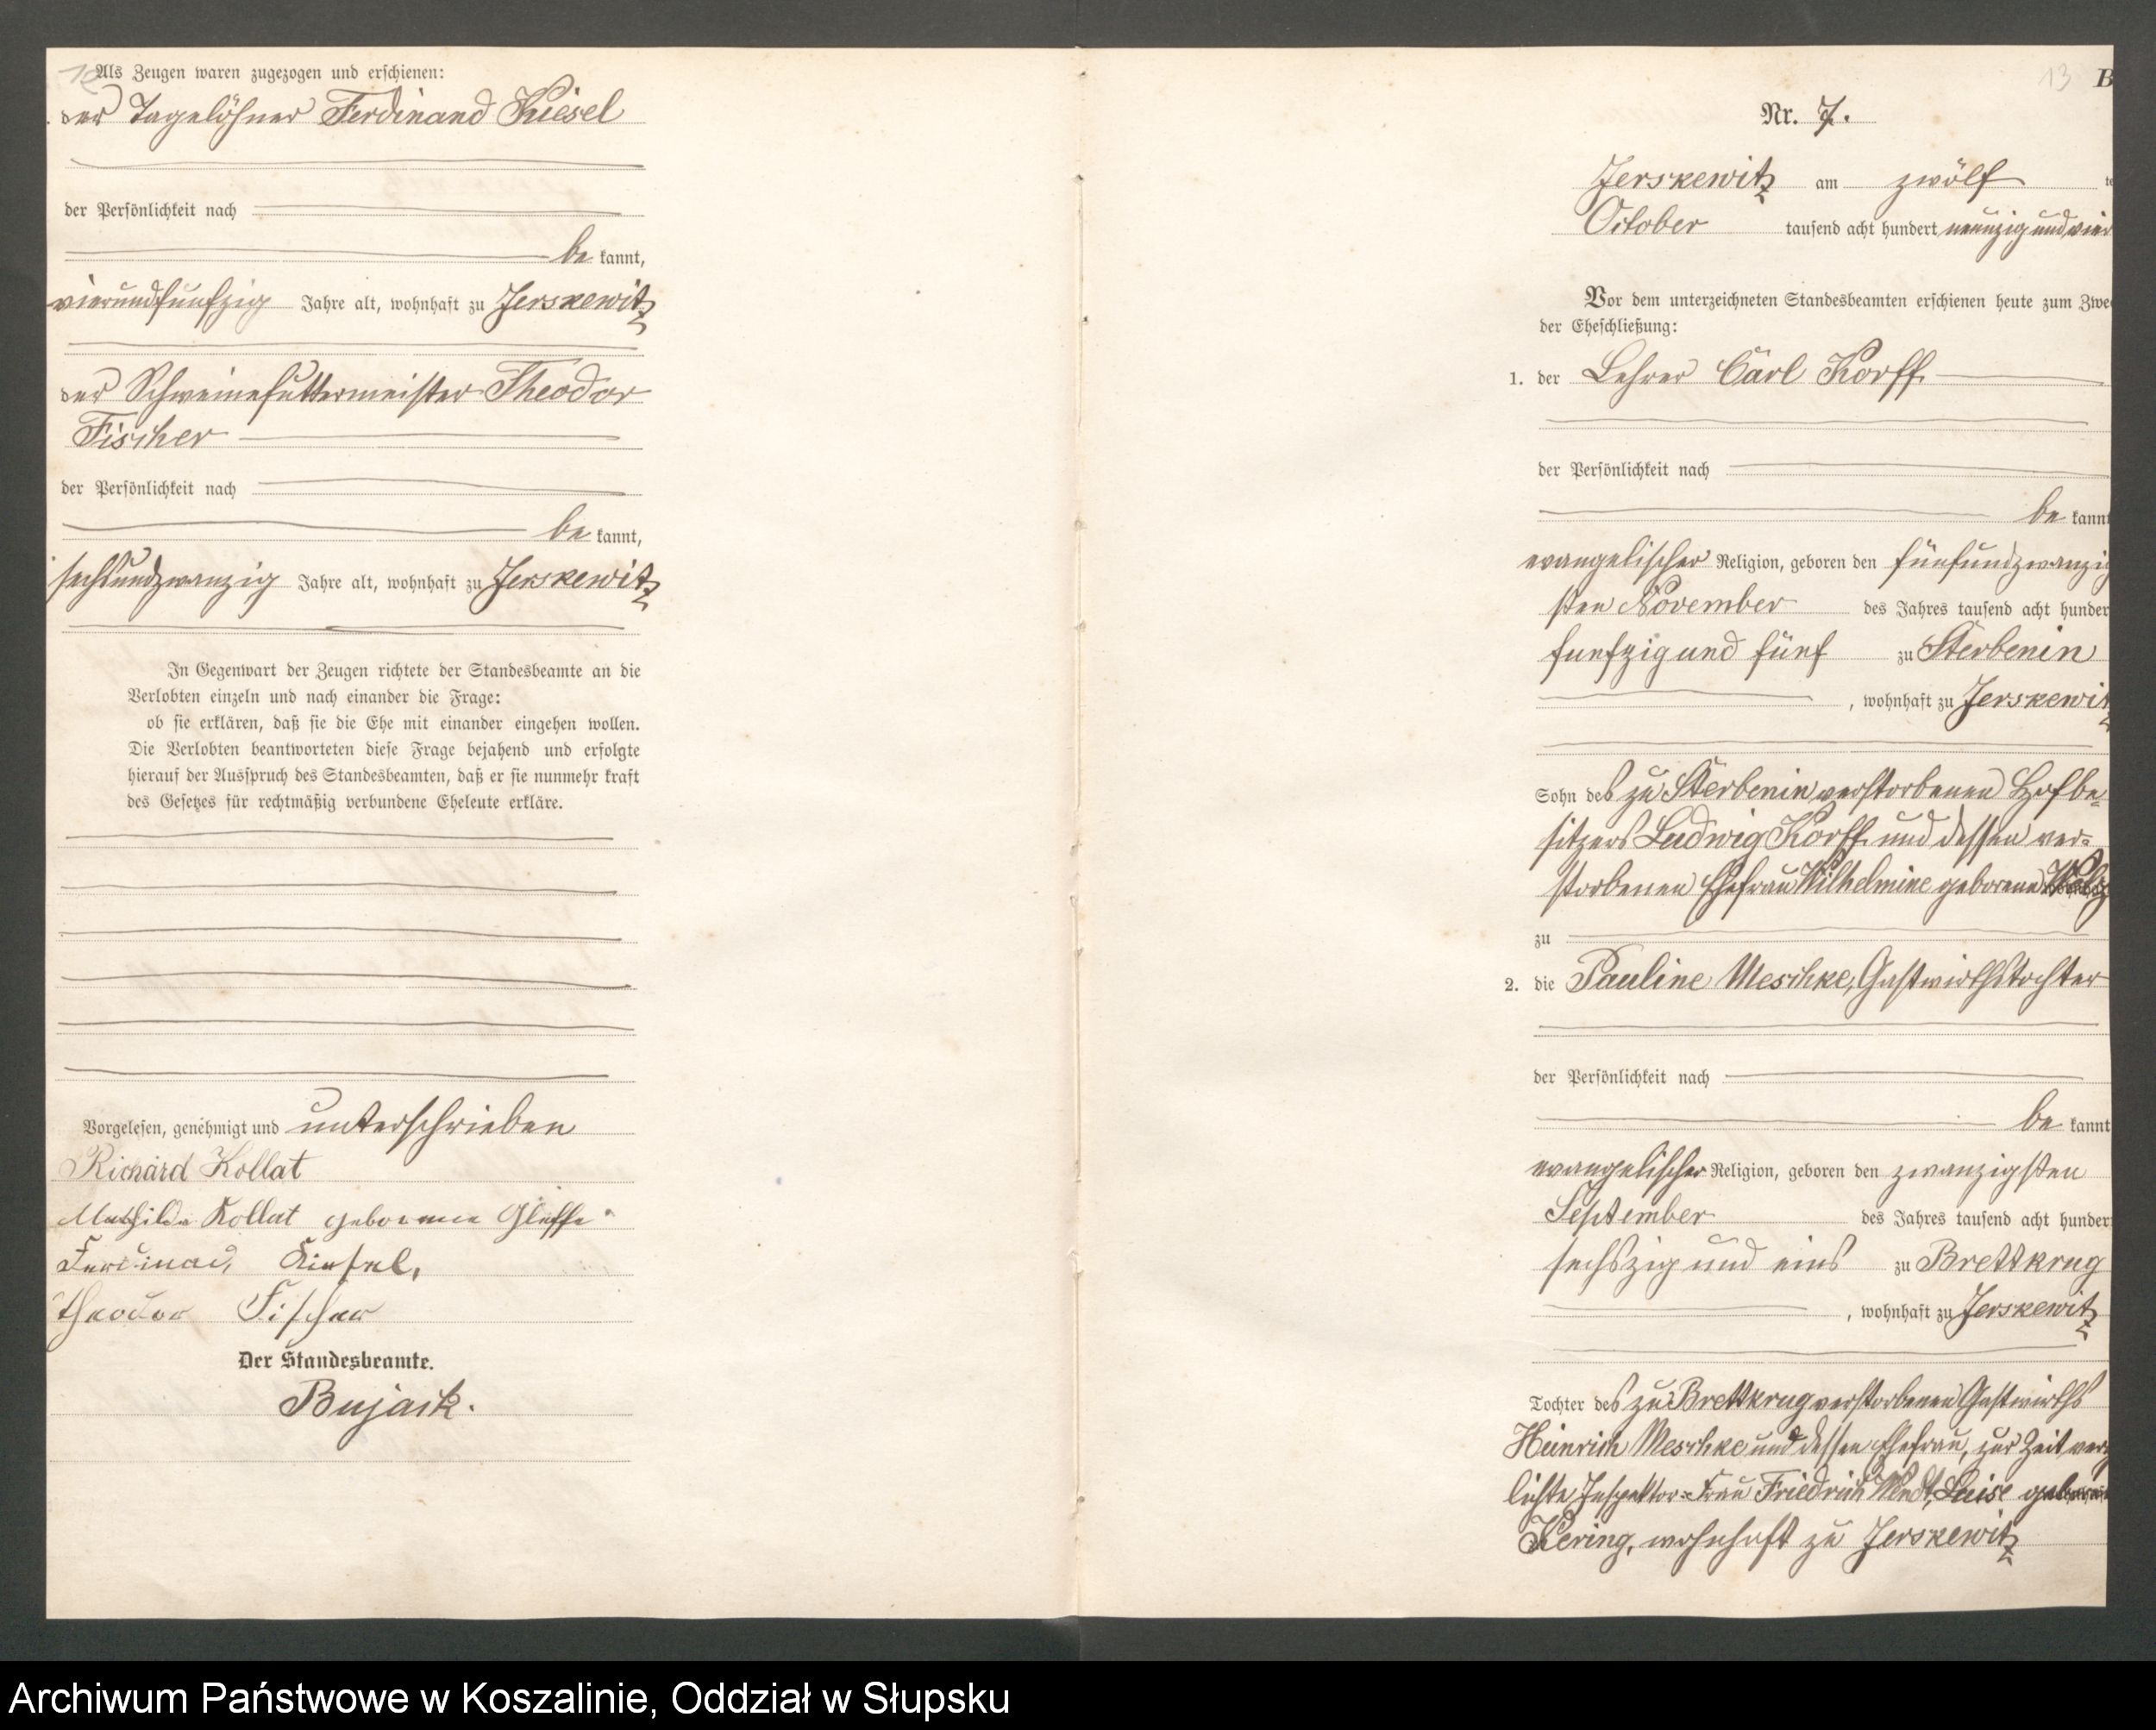 12
Als Zeugen waren zugezogen und erschienen:
der Tagelöhner Ferdinand Kiesel
der Persönlichkeit nach
be kannt,
vierundfunfzig Jahre alt, wohnhaft zu Jerskewitz
der Schweinefuttermeister Theodor
Fischer
der Persönlichkeit nach
be kannt,
sechsundzwanzig Jahre alt, wohnhaft zu Jerskewitz
In Gegenwart der Zeugen richtete der Standesbeamte an die
Verlobten einzeln und nach einander die Frage:
ob sie erklären, daß sie die Ehe mit einander eingehen wollen.
Die Verlobten beantworteten diese Frage bejahend und erfolgte
hierauf der Ausspruch des Standesbeamten, daß er sie nunmehr kraft
des Gesetzes für rechtmäßig verbundene Eheleute erkläre.
Vorgelesen, genehmigt und unterschrieben
Richard Kollat
Mathilde Kollat geborene
Ferdinad, Kiesel,
Theodor Fischer
Der Standesbeamte.
Bujack.
13 B
Nr. 7.
Jerskewitz am zwölf te
October tausend acht hundert neunzig und vier
Vor dem unterzeichneten Standesbeamten erschienen heute zum Zwe
der Eheschließung:
1. der Lehrer Carl Korff
der Persönlichkeit nach
be kannt
evangelischer Religion, geboren den fünfundzwanzig
sten November des Jahres tausend acht hunder
funfzig und fünf zu Sterbenin
, wohnhaft zu Jerskewitz
Sohn des zu Sterbenin verstorbenen Hofbe-
sitzers Ludwig Korff und dessen ver-
storbenen Ehefrau Wilhelmine geborene
zu
2. die Pauline Meschke, Gastwirthstochter
der Persönlichkeit nach
be kannt
evangelischer Religion, geboren den zwanzigsten
September des Jahres tausend acht hunder
sechszig und eins zu Brettkrug
, wohnhaft zu Jerskewitz
Tochter des zu Brettkrug verstorbenen Gastwirths
Heinrich Meschke und dessen Ehefrau, zur Zeit
lichte Inspektor-Frau Friedrich Wendt, Luise geborene
Kering, wohnhaft zu Jerskewitz
Archiwum Państwowe w Koszalinie, Oddział w Słupsku